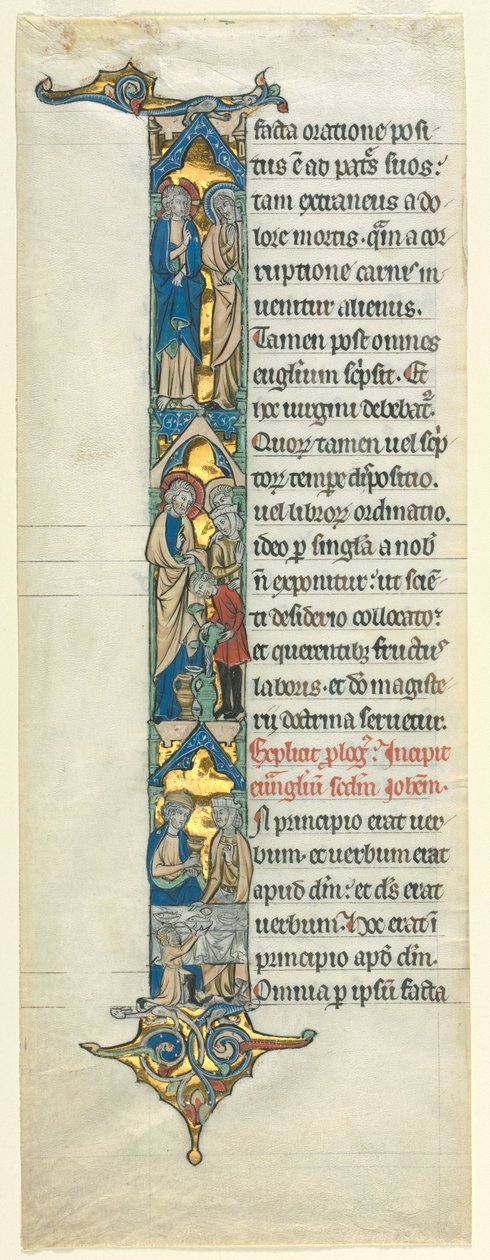 facta oratione posi
tus ē ad pat̄s suos:
tam extraneus a do
lore mortis. q̄m a cor
ruptione carnis in
uenitur alienus.
Tamen post omnes
eugl̄ium sc̄psit. Et
hoc uirgini debebat̄.
Quoꝝ tamen uel sc̄p
toꝝ tempꝭ dispositio.
uel libroꝝ ordinatio.
ideo ꝑ singl̄a a nob̄
n̄ exponitur: ut sciē
ti desiderio collocato:
et querentibꝫ fructus
laboris. et dō magiste
rii doctrina seruetur.
Explicit ꝓlog̉. Incipit
euu̅gliū scd̄m Joh̄em.
In principio erat uer
bum. et uerbum erat
apud dm̄: et ds̄ erat
uerbum. Hoc erat ī
principio apd̄ dm̄.
Omnia ꝑ ipsū facta